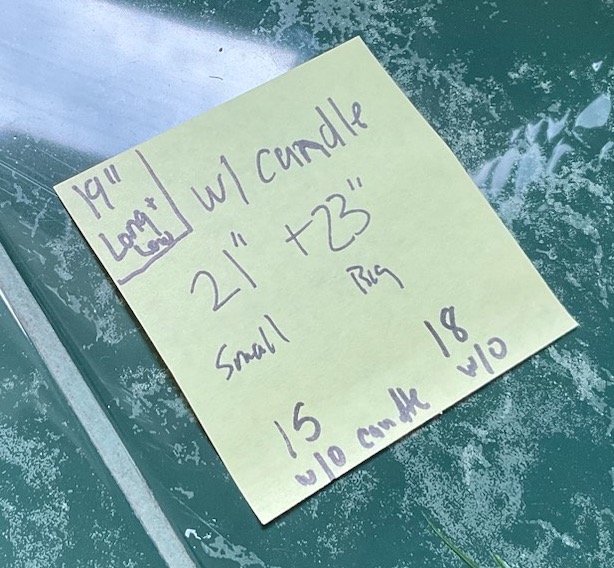 19"
Long +
Low
w/ candle
21" + 23"
Small Big
15 18
w/o candle w/o